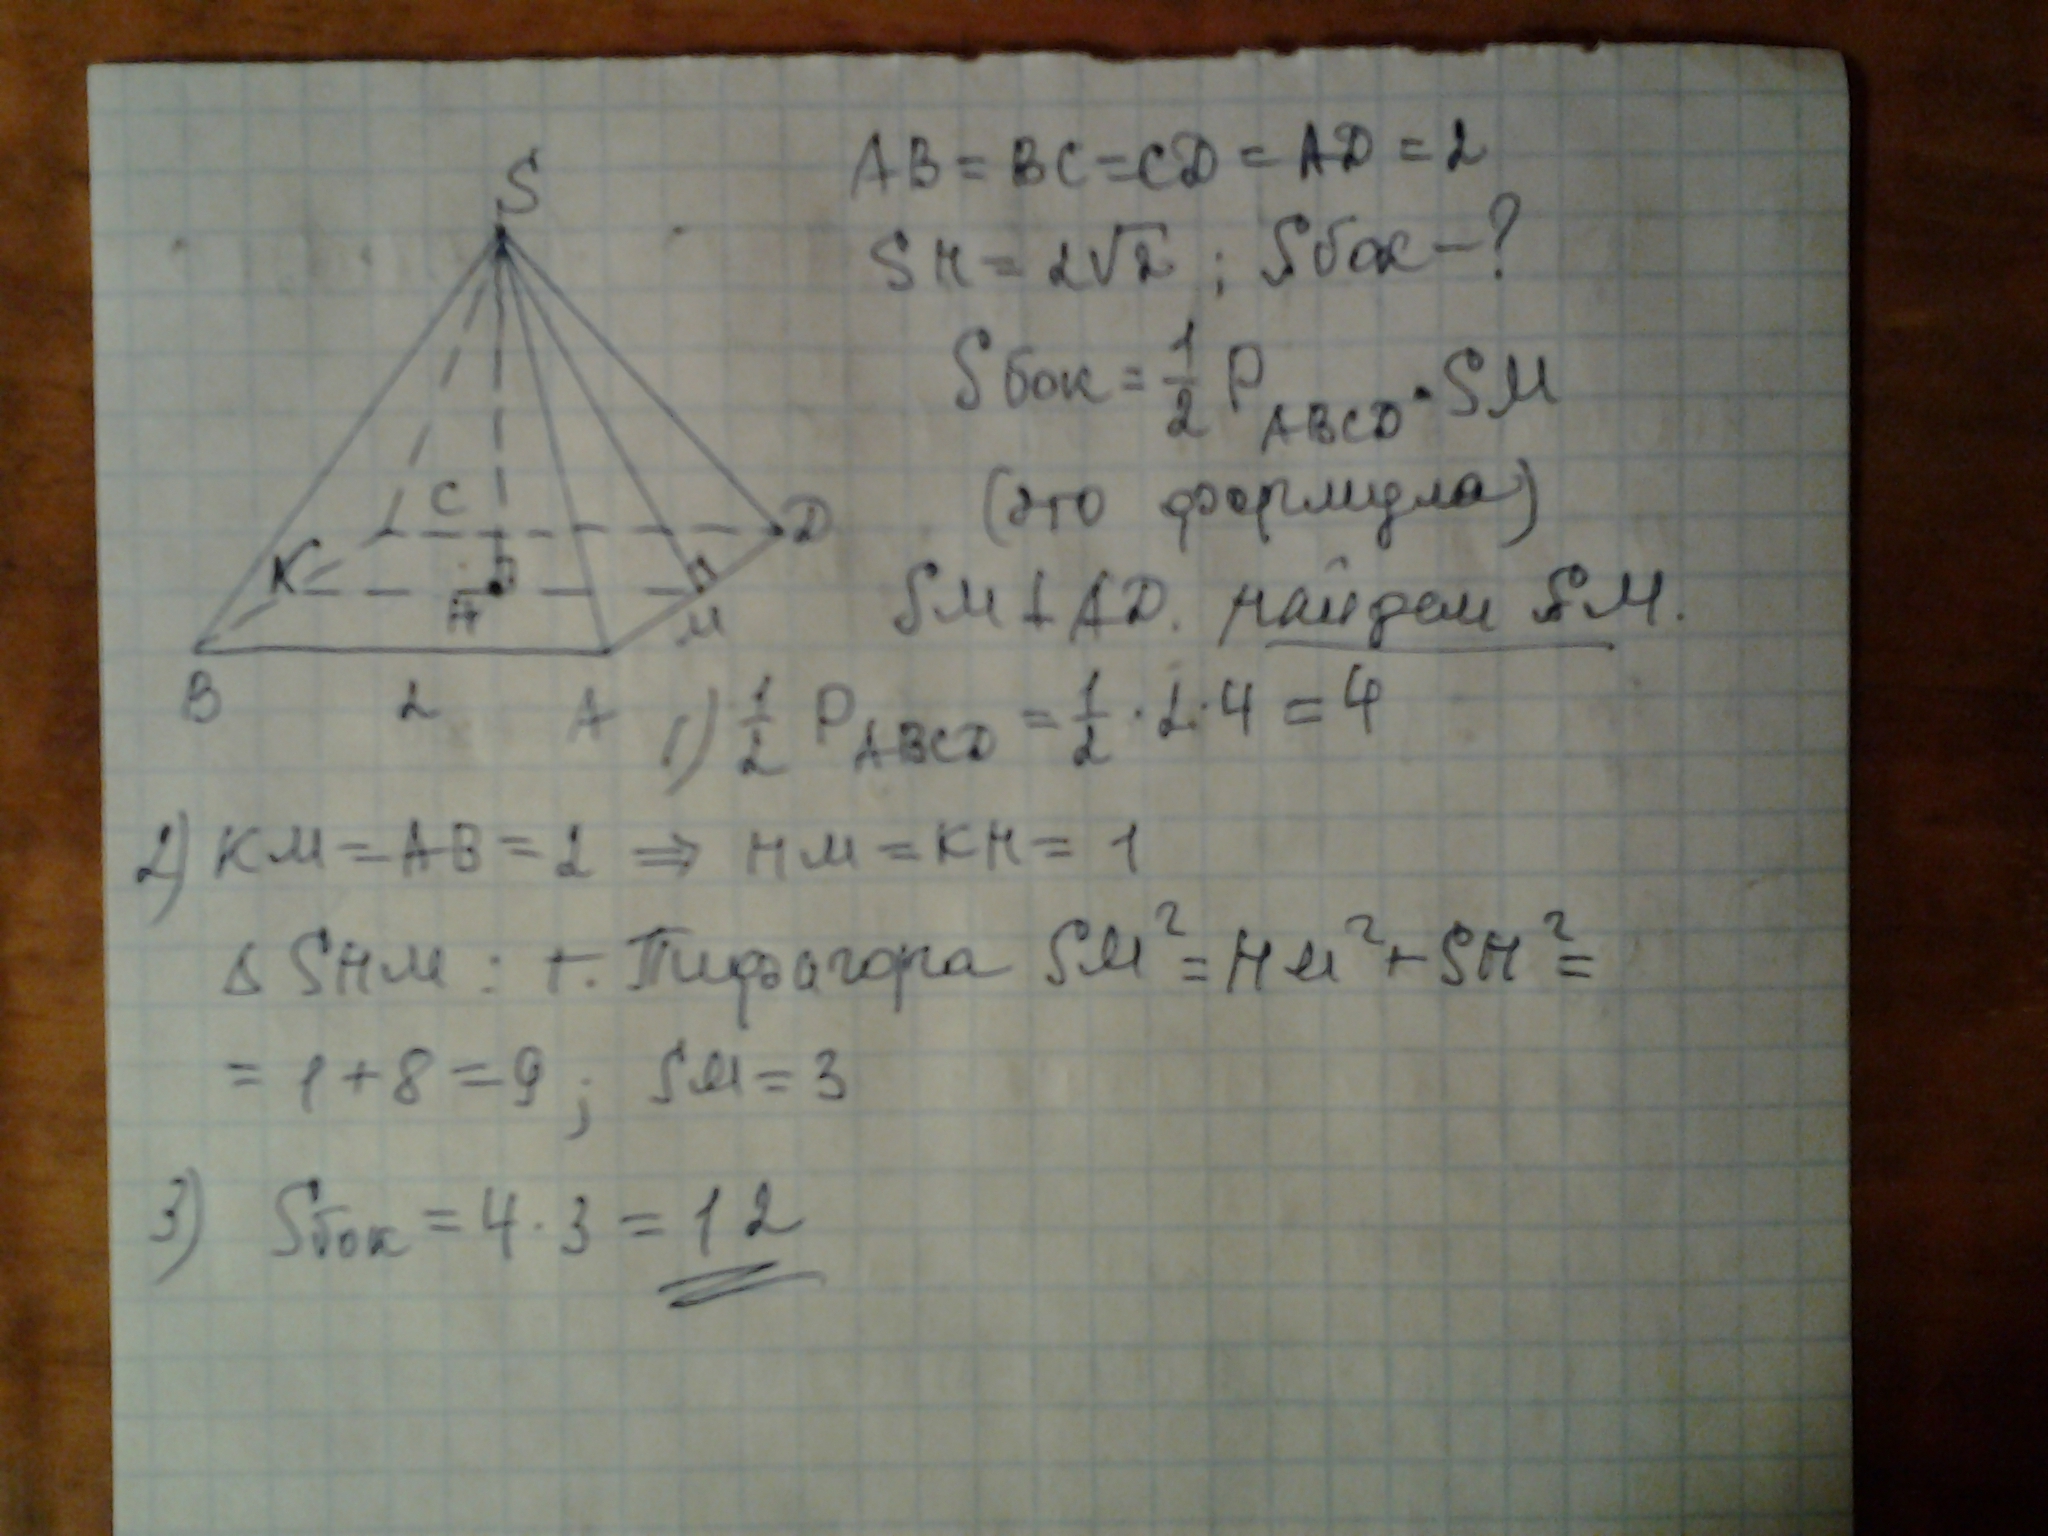 S
C
D
K
H
M
B
2
A
AB = BC = CD = AD = 2
SH = 2√2 ; Sбок – ?
Sбок = 1/2 P ABCD · SM
(это формула)
SM ⊥ AD. найдем SM.
1) 1/2 P ABCD = 1/2 · 2 · 4 = 4
2) KM = AB = 2 ⇒ HM = KH = 1
Δ SHM : т. Пифагора SM² = HM² + SH² =
= 1 + 8 = 9 ; SM = 3
3) Sбок = 4 · 3 = 12